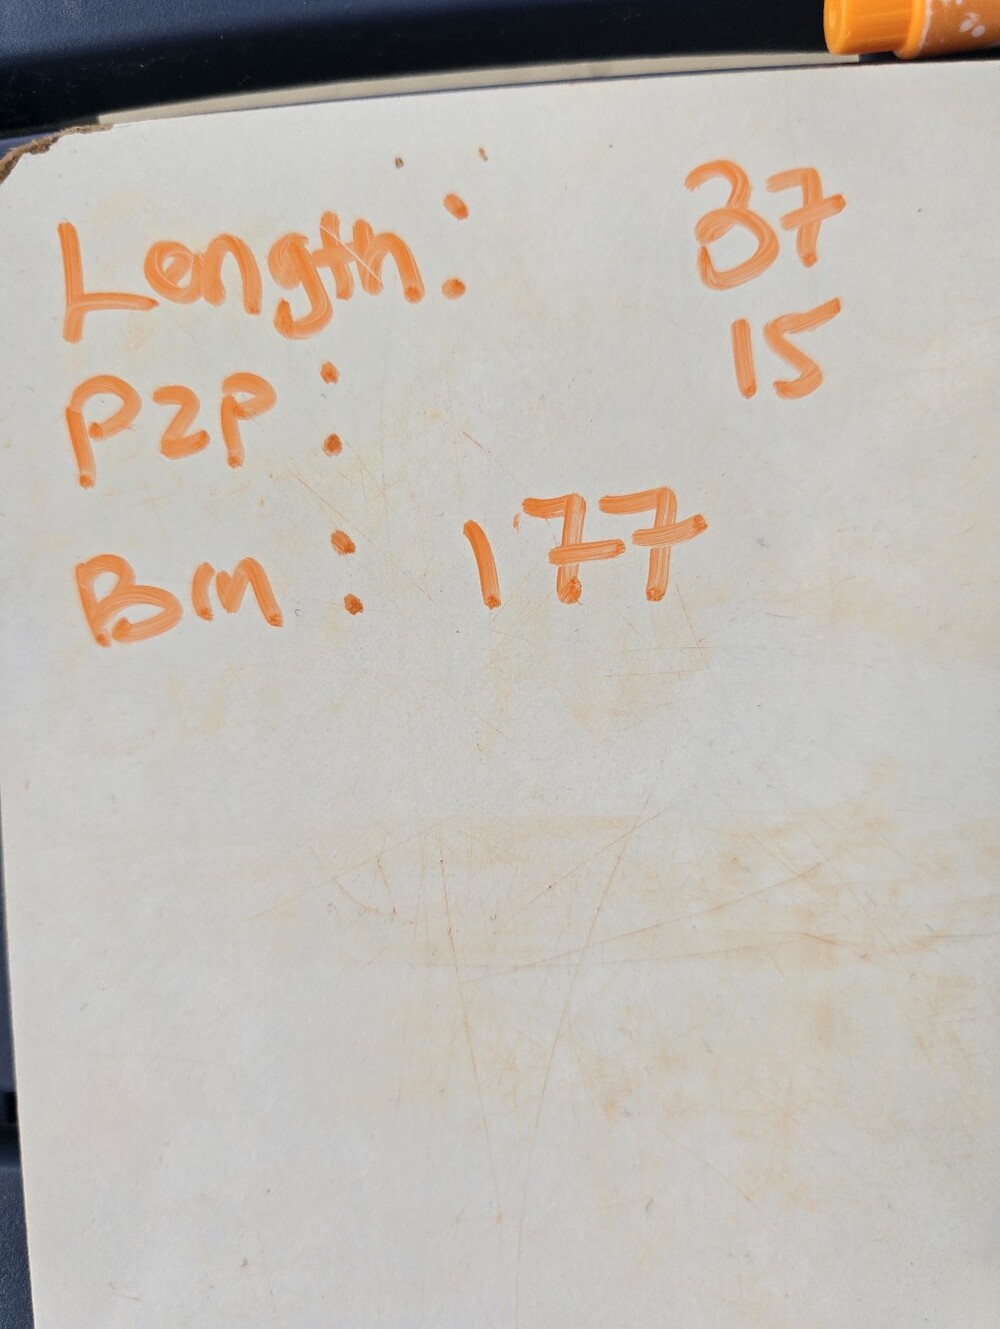 Length: 37
P2P: 15
Bin: 177